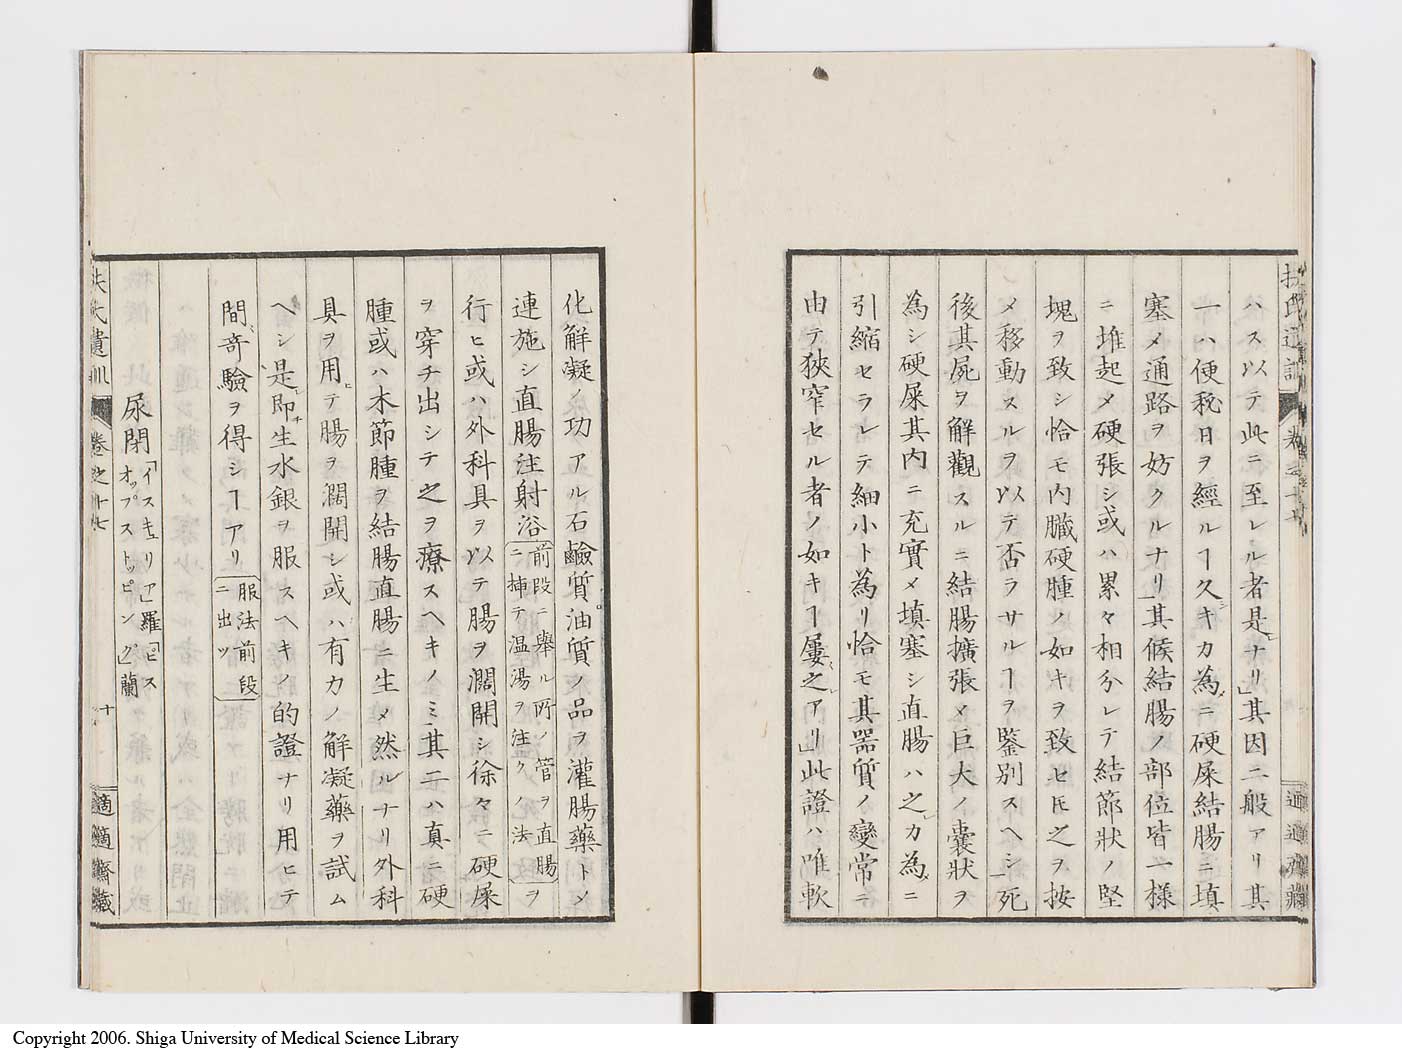 ハス以テ此ニ至レル者是ナリ」其因二般アリ其
一ハ便秘日ヲ經ルヿ久キカ為ニ硬屎結腸ニ填
塞メ通路ヲ妨クルナリ」其候結腸ノ部位皆一様
ニ堆起メ硬張シ或ハ累々相分レテ結節狀ノ堅
塊ヲ致シ恰モ内臓硬腫ノ如キヲ致セ𪜈之ヲ按
メ移動スルヲ以テ否ラサルヿヲ鑒別スヘシ」死
後其屍ヲ解觀スルニ結腸擴張メ巨大ノ嚢狀ヲ
為シ硬屎其内ニ充實メ填塞シ直腸ハ之カ為ニ
引縮セラレテ細小ト為リ恰モ其器質ノ變常ニ
由テ狹窄セル者ノ如キヿ屢之アリ」此證ハ唯軟
化解凝ノ功アル石鹼質油質ノ品ヲ灌腸藥トメ
連施シ直腸注射浴前段ニ擧ル所ノ管ヲ直腸ニ挿テ温湯ヲ注クノ法ヲ
行ヒ或ハ外科具ヲ以テ腸ヲ濶開シ徐々ニ硬屎
ヲ穿チ出シテ之ヲ療スヘキノミ」其二ハ真ニ硬
腫或ハ木節腫ヲ結腸直腸ニ生メ然ルナリ外科
具ヲ用ヒテ腸ヲ濶開シ或ハ有力ノ解凝藥ヲ試ム
ヘシ是即チ生水銀ヲ服スヘキノ的證ナリ用ヒテ
間奇驗ヲ得シヿアリ服法前段ニ出ツ
尿閉「イスキュリア」羅「ピスオップストッピング」蘭
扶氏遺訓 卷之十七 十 適適齋藏